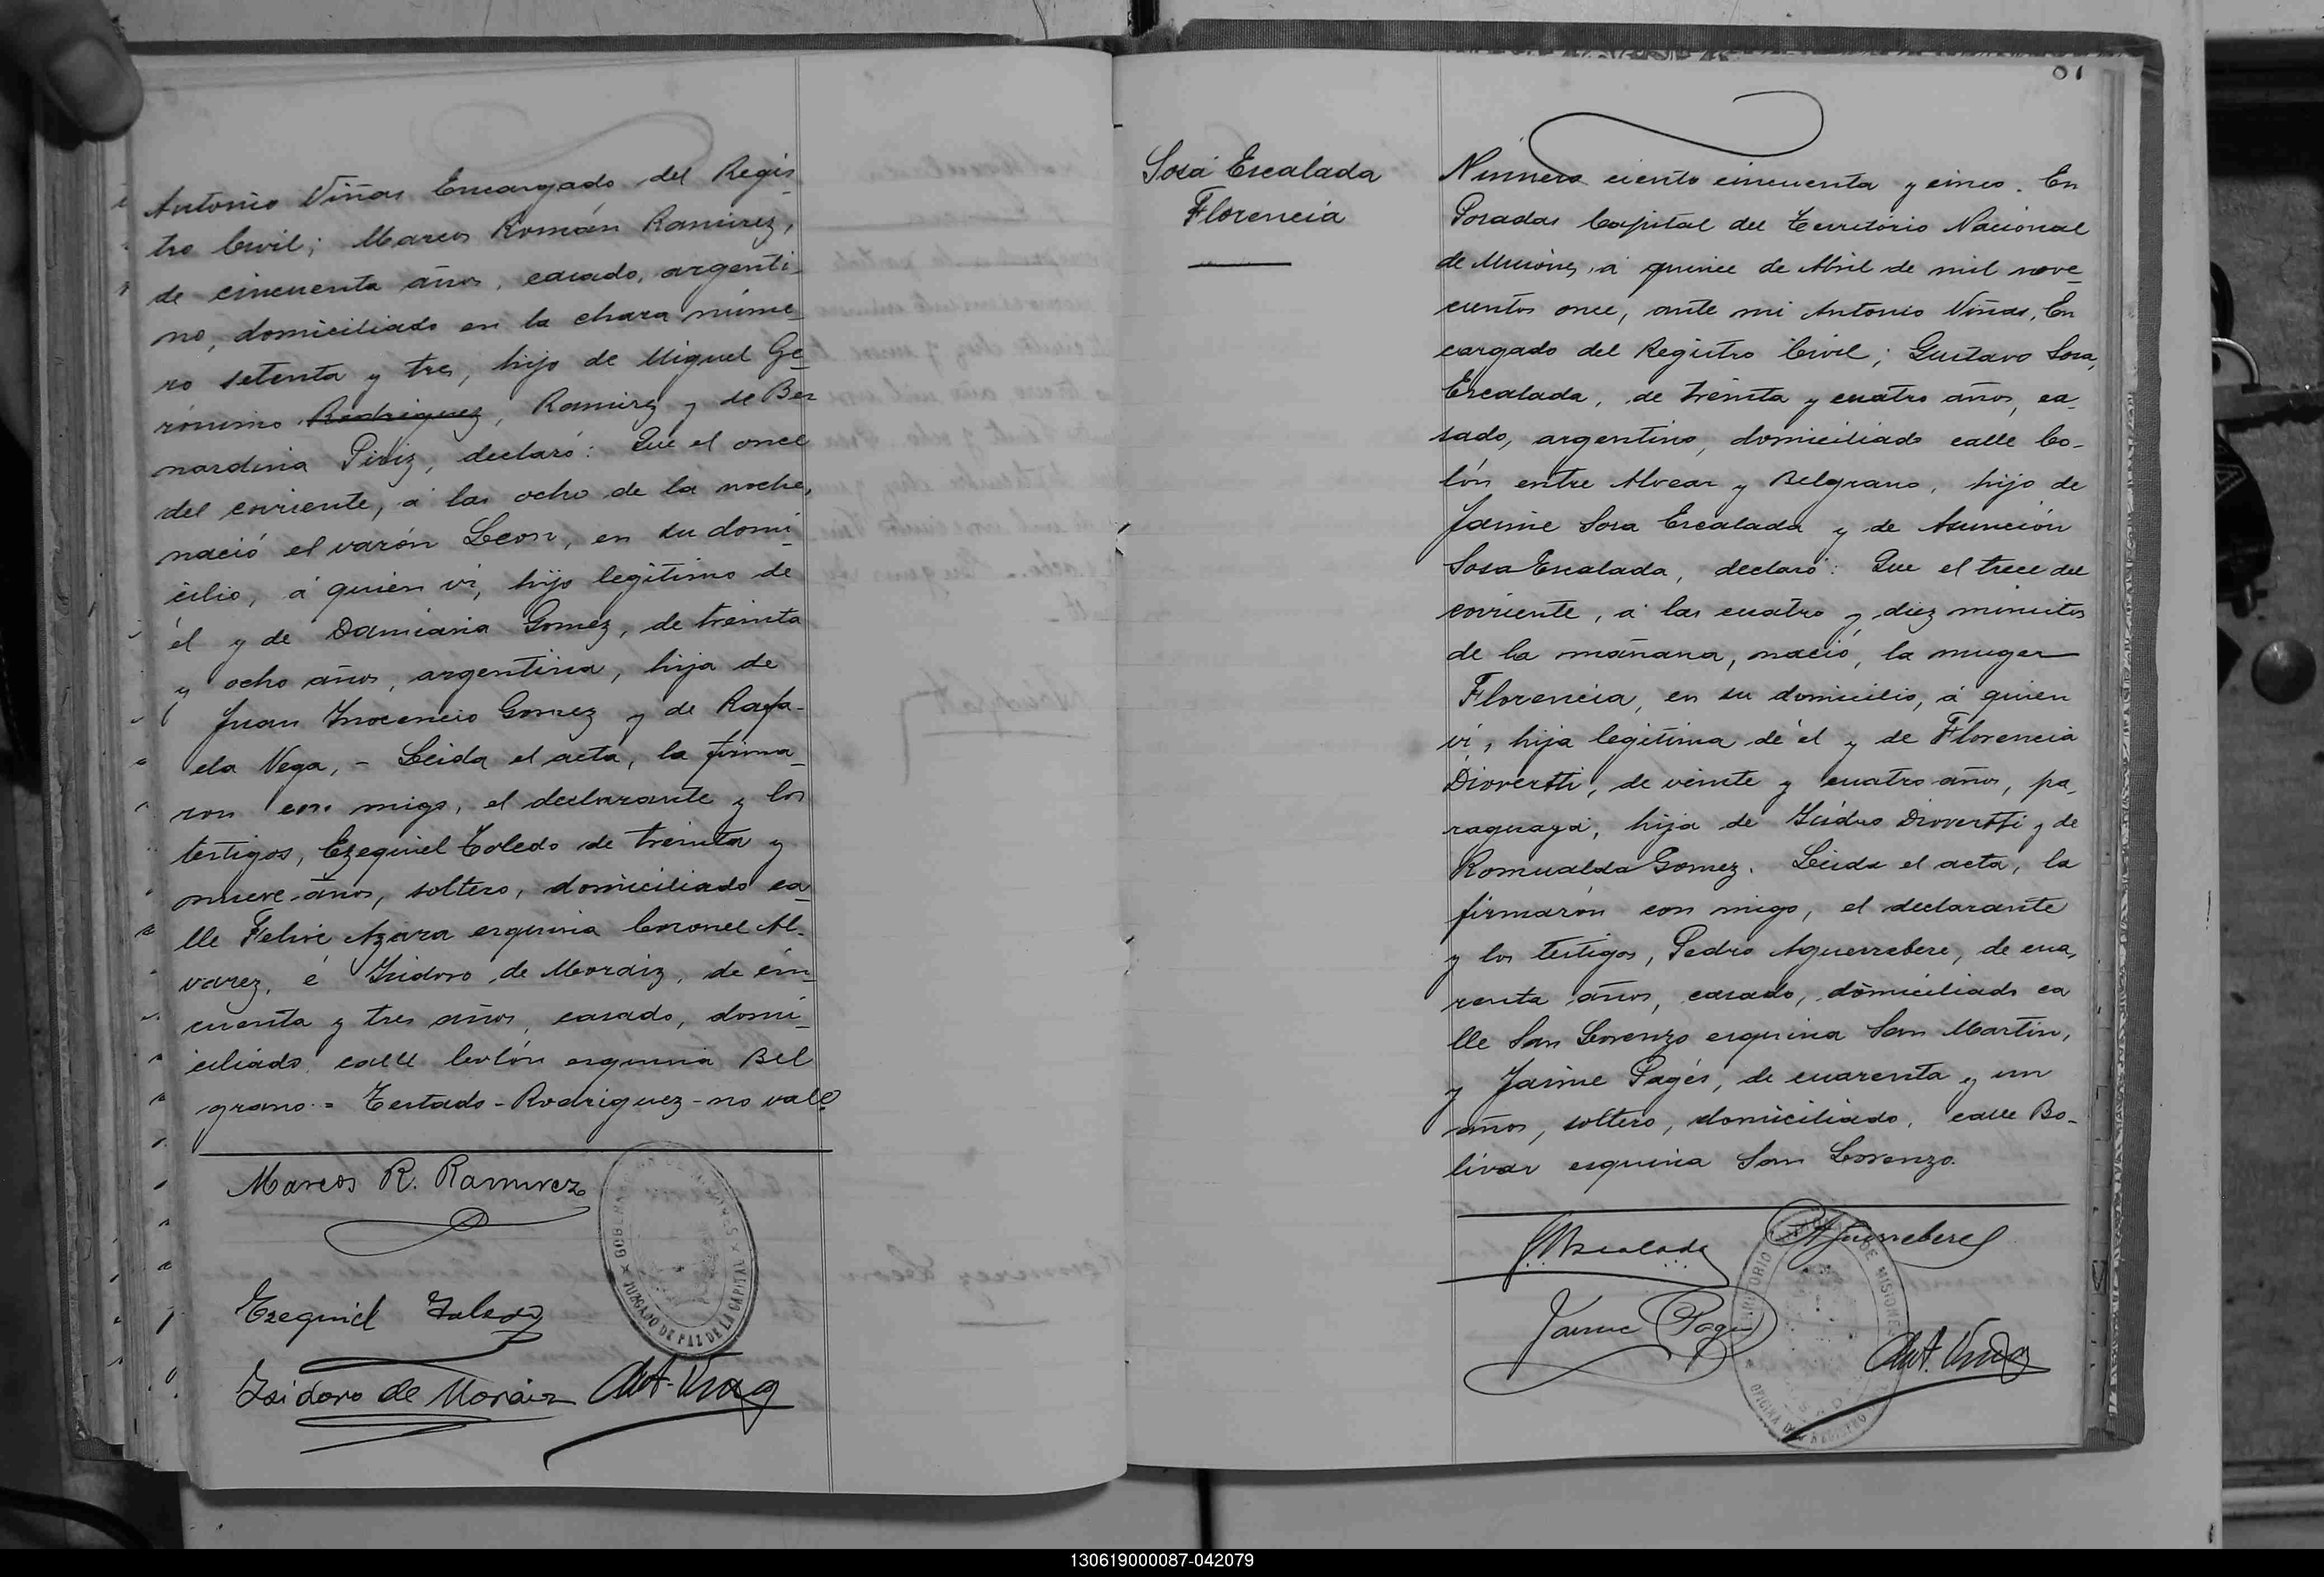 Antonio Viñas Encargado del Regis
tro Civil; Marcos Román Ramirez,
de cincuenta años, casado, argenti-
no, domiciliado en la chara núme-
ro setenta y tres, hijo de Miguel Ge-
rónimo Rodriguez, Ramirez y de Ber
nardina Piriz, declaró: Que el once
del corriente, á las ocho de la noche,
nació el varón Leon, en su domi-
cilio, á quien vi, hijo legítimo de
él y de Damiana Gomez, de treinta
y ocho años, argentina, hija de
Juan Inocencio Gomez y de Rafa-
ela Vega, - Leida el acta, la firma-
ron con migo, el declarante y los
testigos, Ezequiel Toledo de treinta y
nueve años, soltero, domiciliado ca-
lle Felix Azara esquina Coronel Al-
varez, é Isidoro de Moraiz, de cin-
cuenta y tres años, casado, domi-
ciliado calle Colón esquina Bel
grano = Testado - Rodriguez - no vale
Marcos R. Ramirez
GOBERNACION DE MISIONES
JUZGADO DE PAZ DE LA CAPITAL
Ezequiel Toledo
Isidoro de Moráiz Ant. Viñas
87
Sosa Escalada
Florencia
Número ciento cincuenta y cinco. En
Posadas Capital del Território Nacional
de Misiones, á quince de Abril de mil nove-
cientos once, ante mi Antonio Viñas, En
cargado del Registro Civil; Gustavo Sosa,
Escalada, de treinta y cuatro años, ca-
sado, argentino, domiciliado calle Co-
lón entre Alvear y Belgrano, hijo de
Jaime Sosa Escalada y de Asunción
Sosa Escalada, declaró: Que el trece del
corriente, á las cuatro y diez minutos
de la mañana, nació, la muger
Florencia, en su domicilio, á quien
vi, hija legítima de él y de Florencia
Diovertti, de veinte y cuatro años, pa-
raguaya, hija de Isidro Diovertti y de
Romualda Gomez. Leida el acta, la
firmarón con migo, el declarante
y los testigos, Pedro Aguerrebere, de cua,
renta años, casado, domiciliado ca
lle San Lorenzo esquina San Martin,
y Jaime Pagés, de cuarenta y un
años, soltero, domiciliado, calle Bo-
livar esquina San Lorenzo.
Escalada P Aguerrebere
Jaime Pagés
TERRITORIO DE MISIONES
OFICINA DEL REGISTRO
Ant. Viñas
130619000087-042079